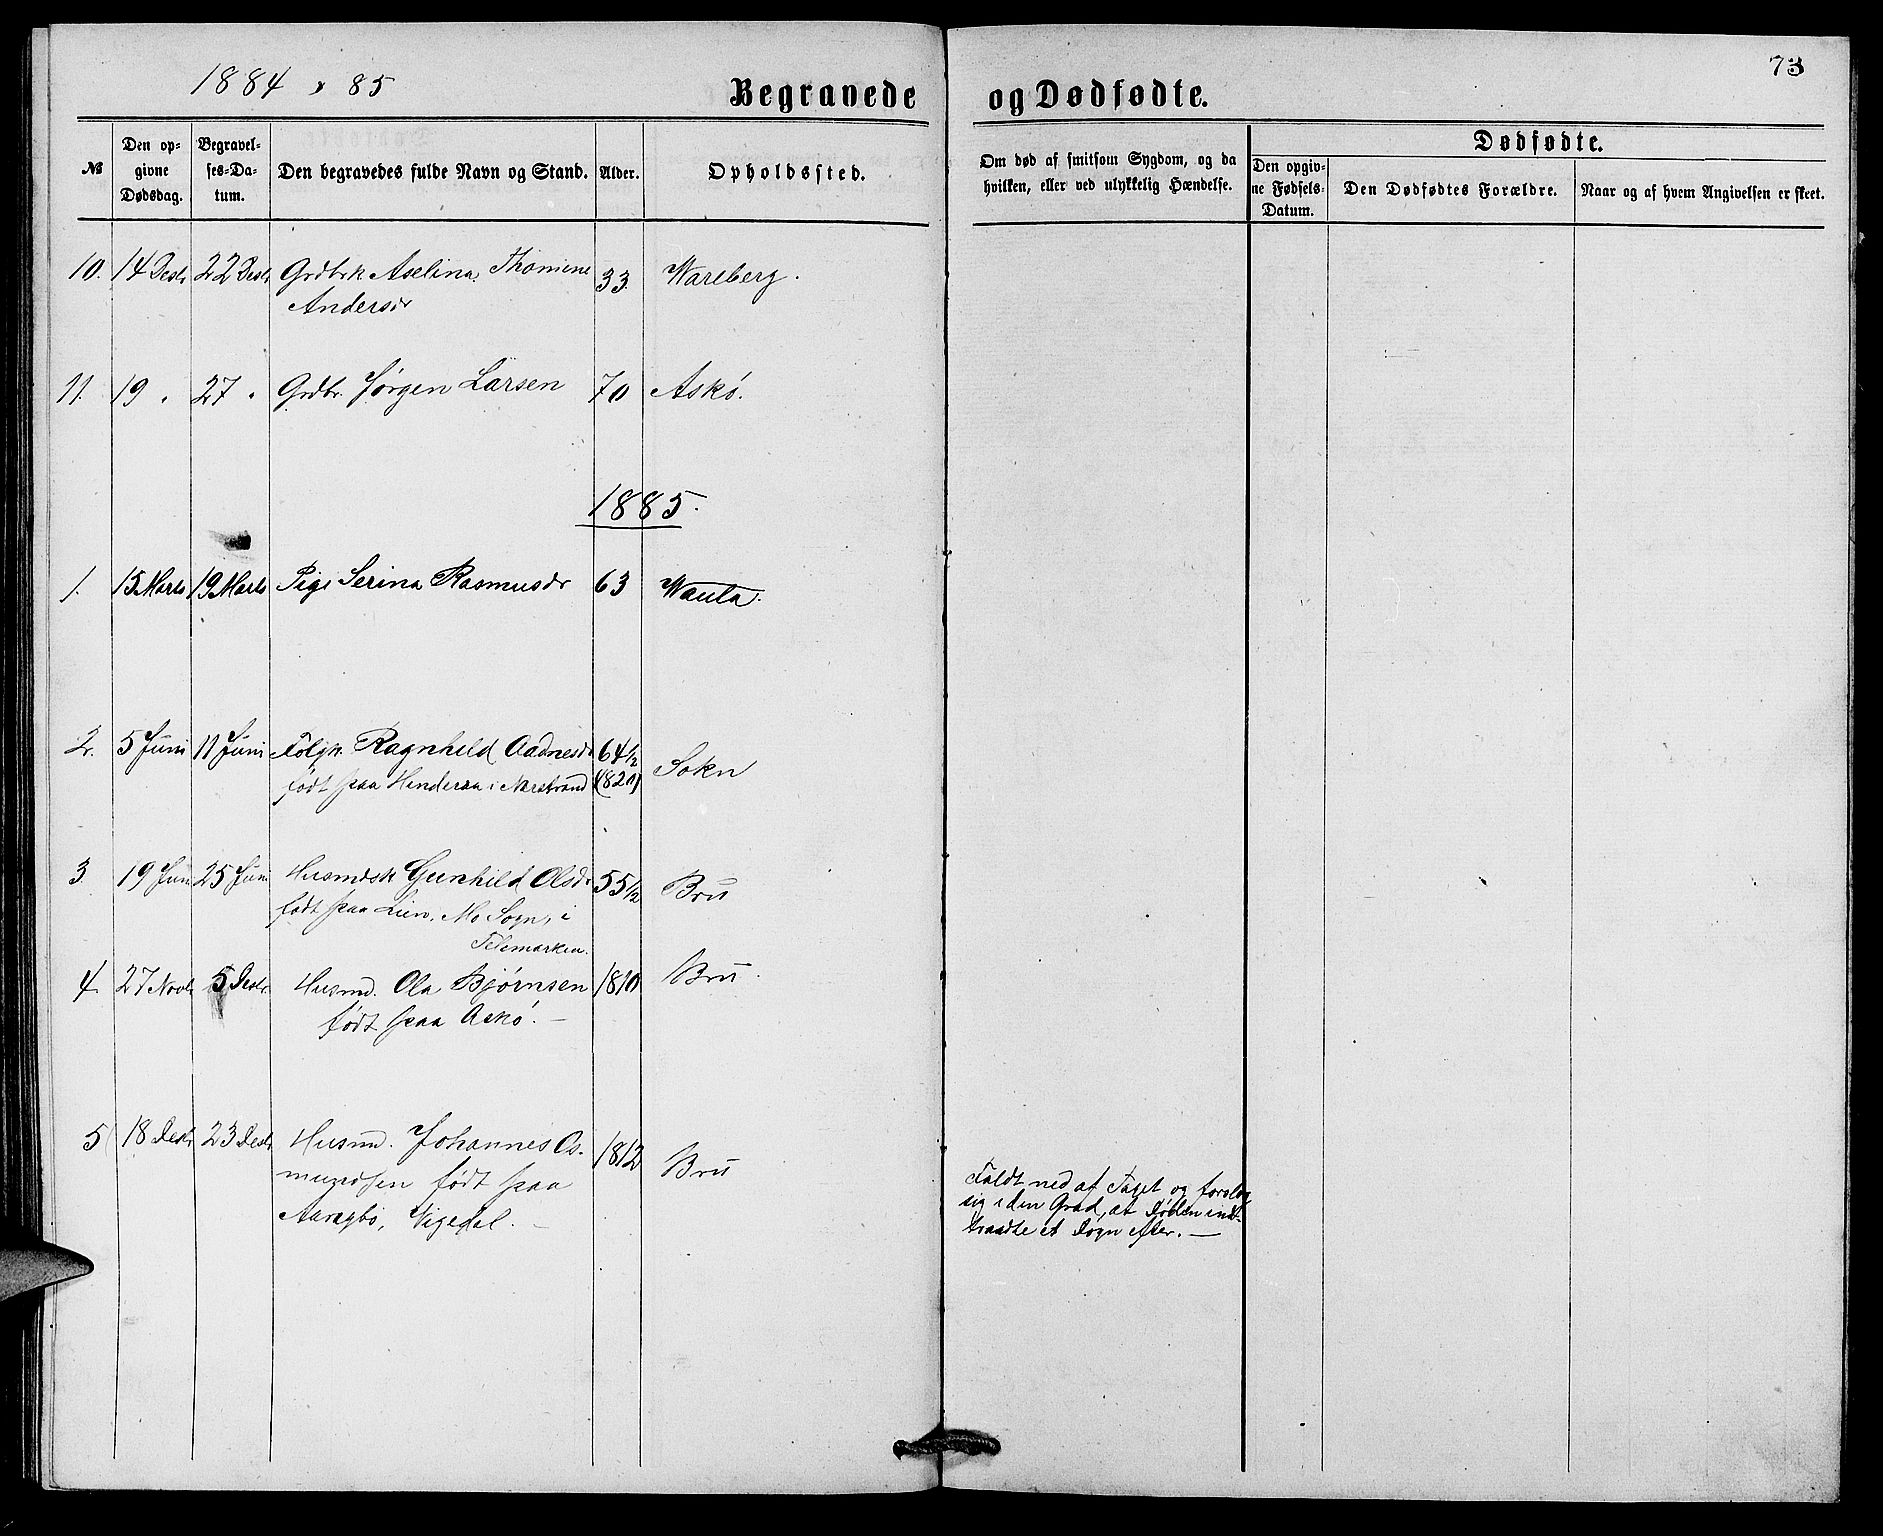 1884 & 85
Begravede og Dødfødte.
73
№
Den op-
givne
Dødsdag.
Begravel-
ses-Da-
tum.
Den begravedes fulde Navn og Stand.
Alder.
Opholdssted.
Om død af smitsom Sygdom, og da
hvilken, eller ved ulykkelig Hændelse.
Dødfødte.
Den opgiv-
ne Fødsels-
Datum.
Den Dødfødtes Forældre.
Naar og af hvem Angivelsen er skeet.
10. 14 Decbr 22 Decbr Grdbrk Aselina Thomine 33. Wareberg.
Andersdr
11. 19 " 27 " Grdbr. Jørgen Larsen 70 Askö.
1885.
1. 15 Marts 19 Marts Pige Serina Rasmusdr 63 Wauta.
2. 5 Juni 11 Juni Folgk. Ragnhild Aadnesdr 64½ Sokn
født paa Henderaa i Narstrand (1820)
3. 19 Juni 25 Juni Husmdsk Gunhild Olsdr 55½ Bru
født paa Lien, Mo Sogn, i
Telemarken.
4. 27 Novbr 5 Decbr Husmd. Ola Bjørnsen 1810 Bru.
født paa Askö. —
5 18 Decbr 23 Decbr Husmd. Johannes As- 1812 Bru
mundsen født paa
Aaragbø, Vigedal. —
Faldt ned af Taget og forslog
sig i den Grad, at Døden ind-
traadte et Døgn efter. —